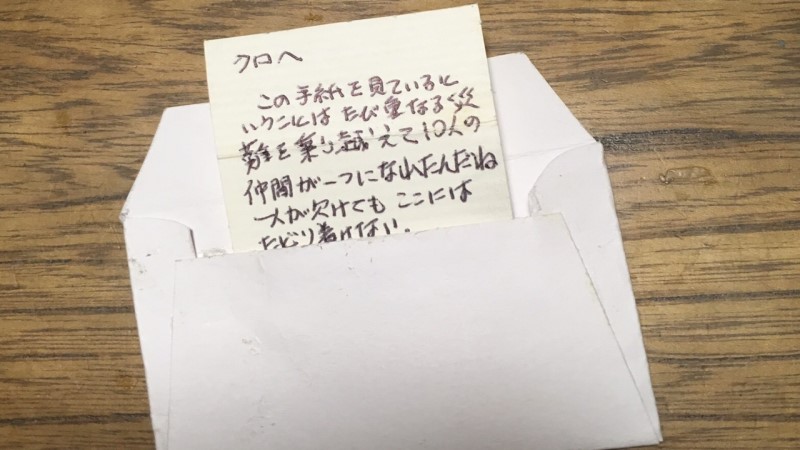 クロへ
この手紙を見ているに
いクニにはたび重なる災
難を乗り越えて10人の
仲間が一つになれたんだね
一人が欠けてもここには
たどり着けない。